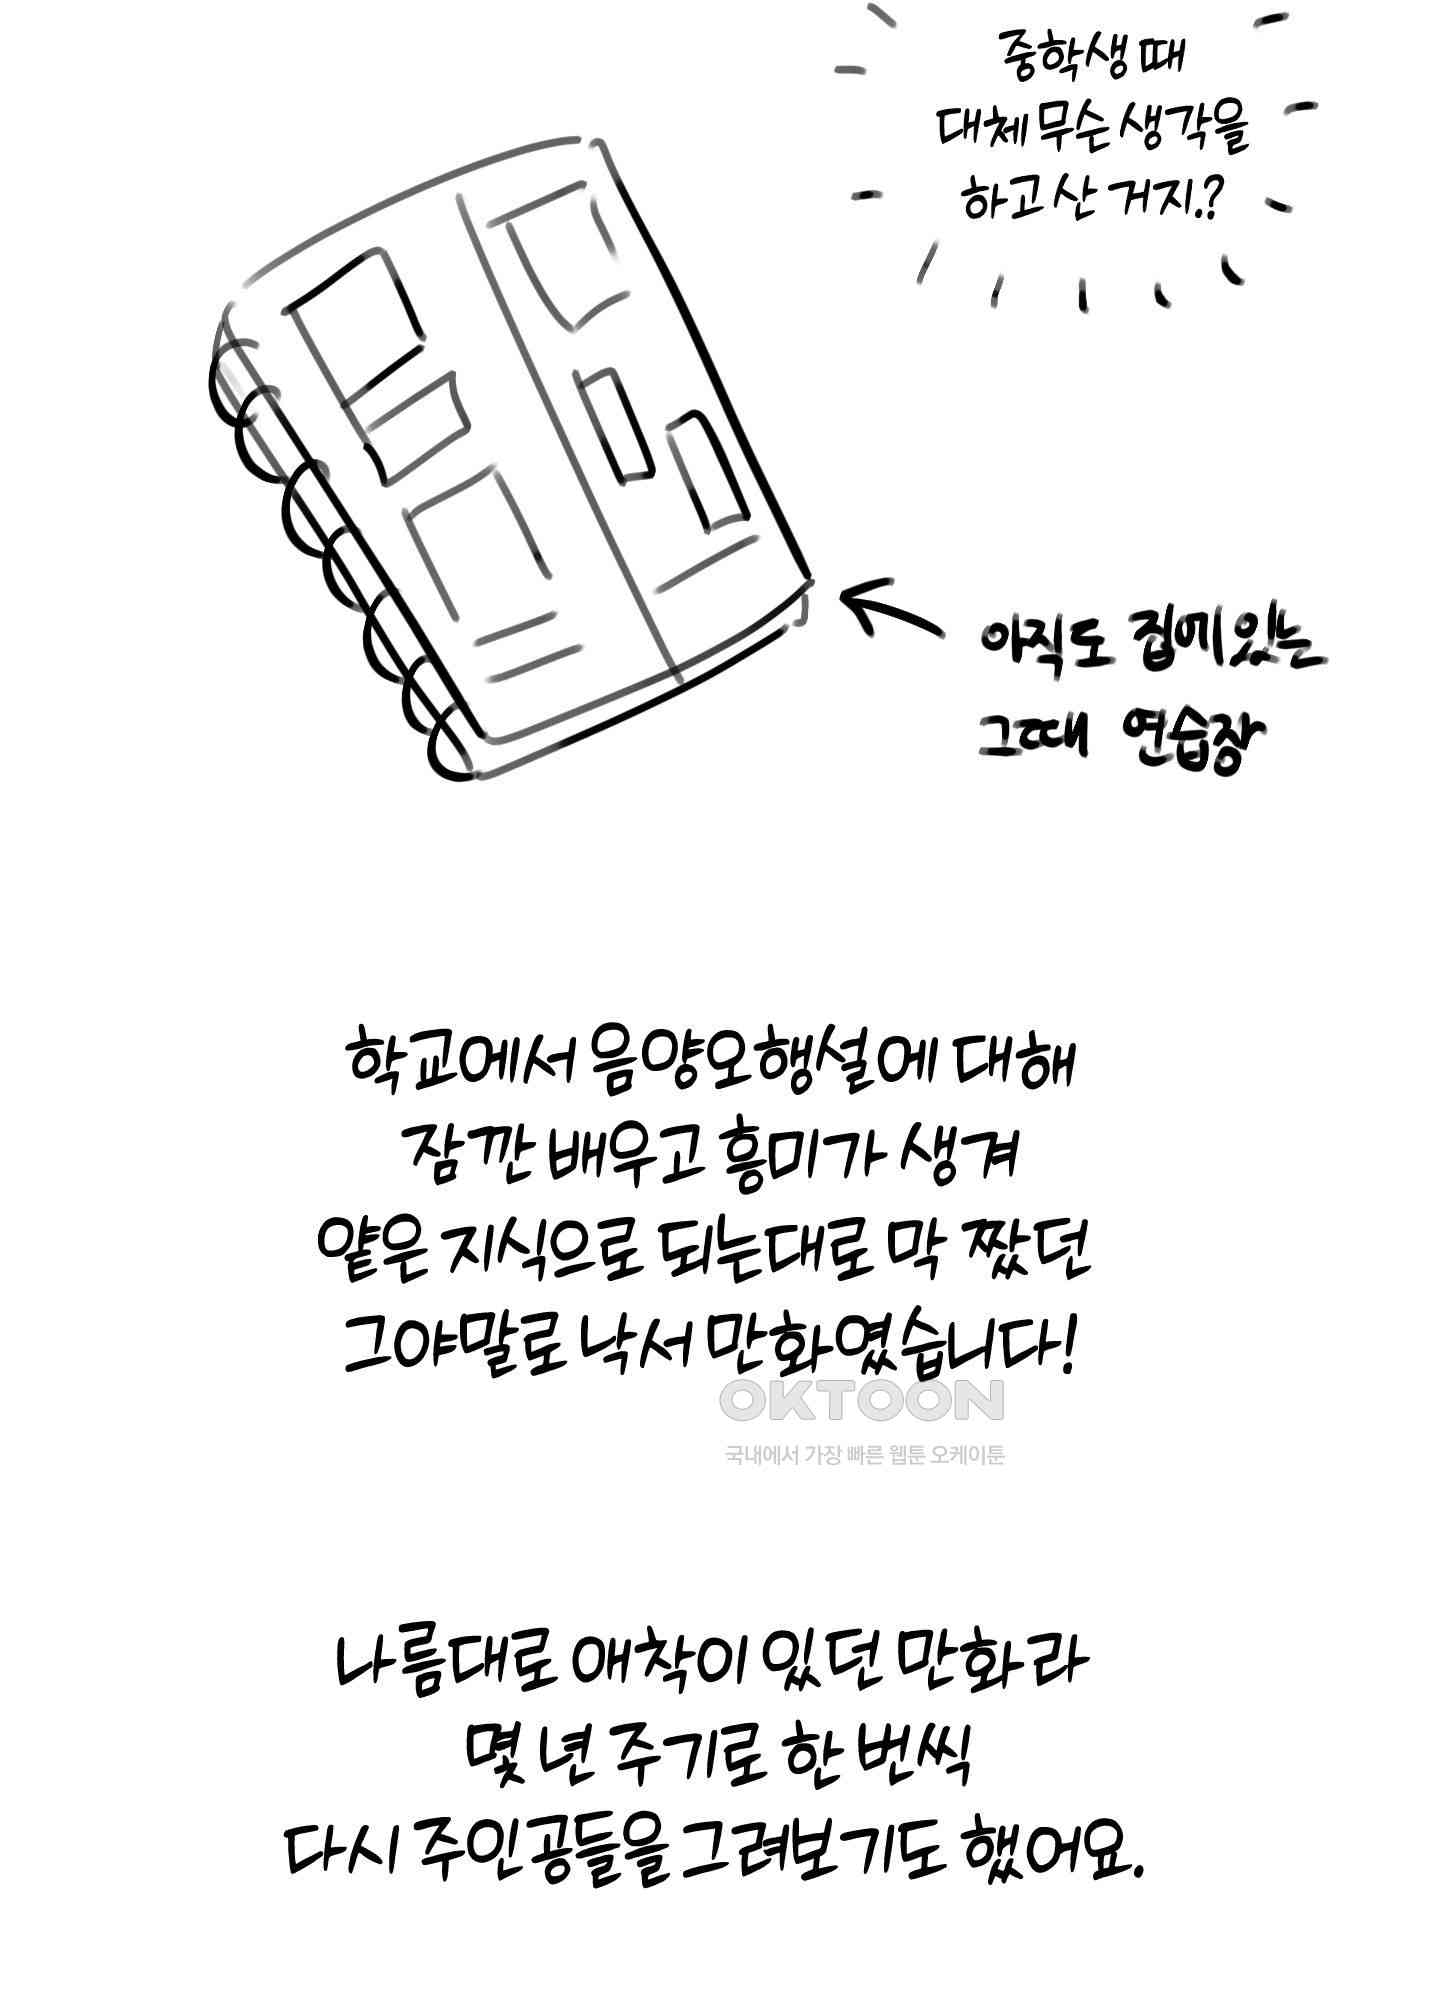 중학생 때
대체 무슨 생각을
하고 산 거지.?
아직도 집에 있는
그때 연습장
학교에서 음양오행설에 대해
잠깐 배우고 흥미가 생겨
얕은 지식으로 되는대로 막 짰던
그야말로 낙서 만화였습니다!
OKTOON
국내에서 가장 빠른 웹툰 오케이툰
나름대로 애착이 있던 만화라
몇 년 주기로 한 번씩
다시 주인공들을 그려보기도 했어요.